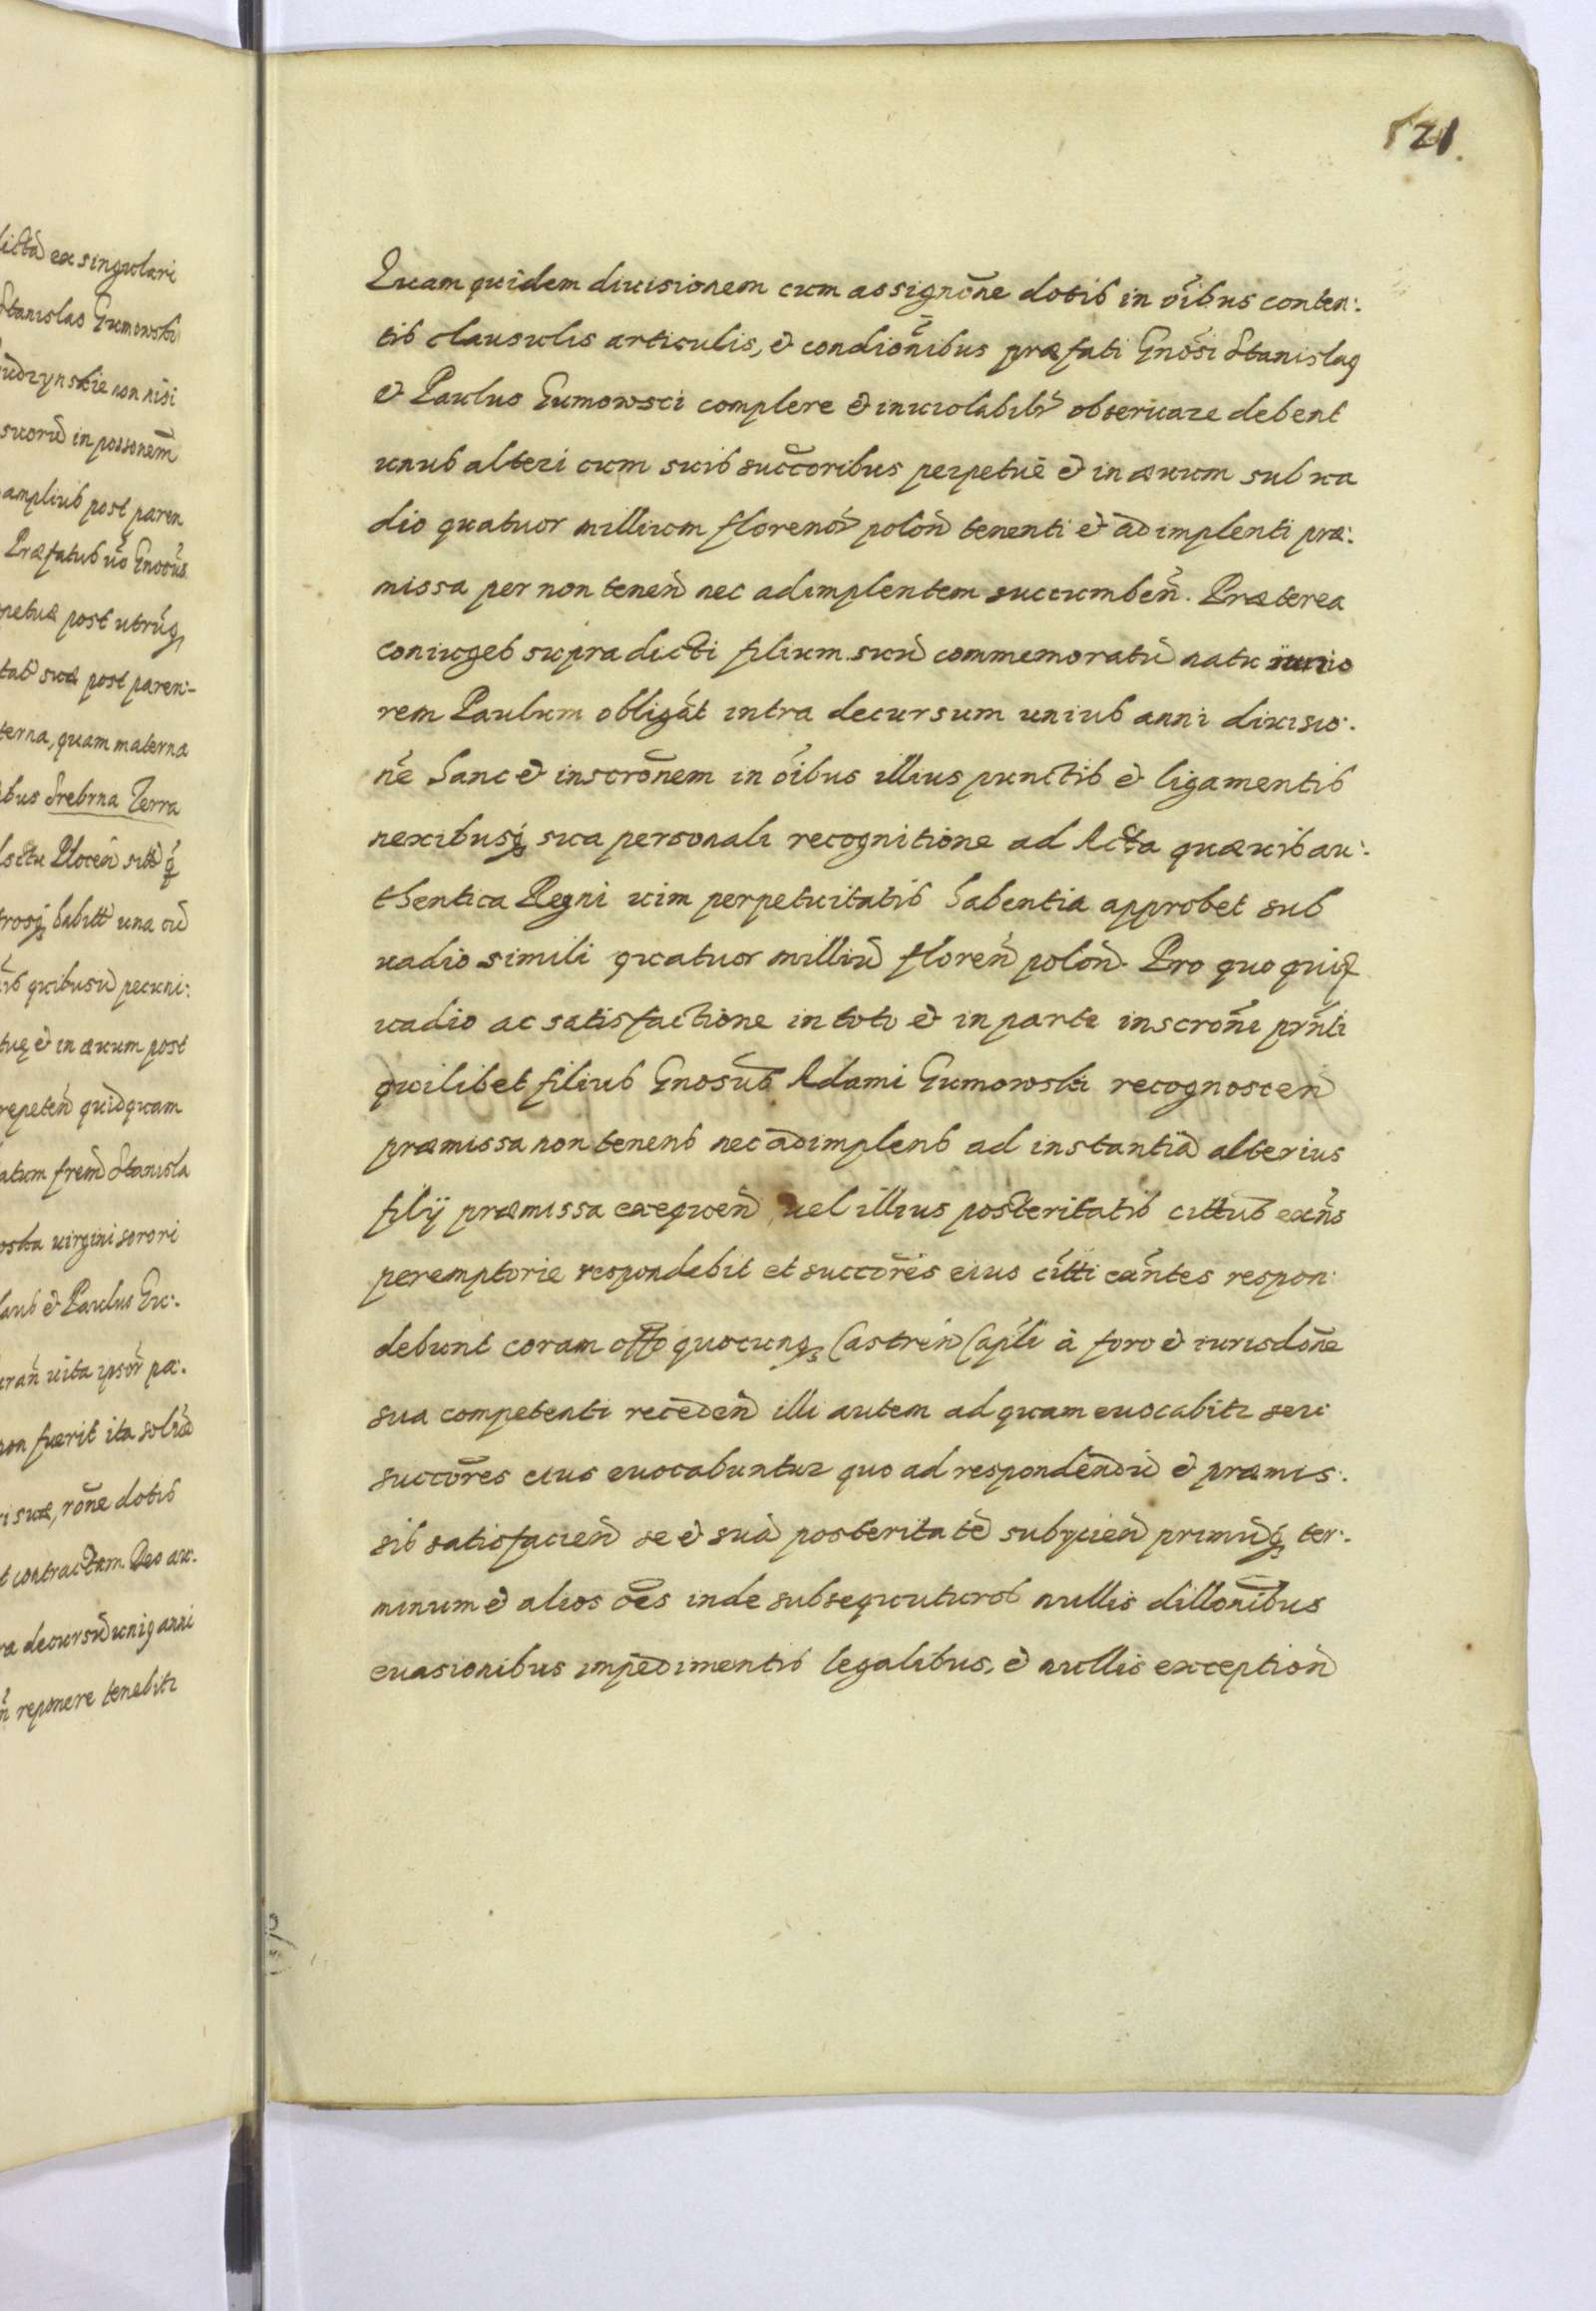 521.
lictã ex singulari
Stanislao Gumowski
udzynskie non nisi
suorũ in possonem̃
amplius post paren
Præfatus ũo Gnosus
petuæ post utrũq
tati suæ post paren:-
terna, quam materna
ibus Srebrna Terra
Plocen̄ sitĩ q̃
trosq habitĩ una cũ
quibusũ pecuni:
tuę & in æuum post
repeten̄ quidquam
atum frem̃ Stanisla
oska uirgini sorori
laus & Paulus Gu:.
uita ipsor̃ pa:.
non fuerit ita solũ
ri suæ, rõne dotis
t contractum Deo au:.
ra decursũ uniq anni
reponere tenebitr
Quam quidem diuisionem cum assignõne dotis in õibus conten:.
tis clausulis articulis, & condiõnibus præfati Gnosi Stanislaq
& Paulus Gumowsci complere & inuiolabilr̃ obseruare debent
unus alteri cum suis succoribus perpetuẽ & in æuum sub ua
dio quatuor millium florenor̃ polon̄ tenenti & adimplenti præ:.
missa per non tenen̄ nec adimplentem succumben̄. Præterea
coniuges supradicti filium suũ commemoratũ natu iunio
rem Paulum obligãt intra decursum unius anni diuisio:.
nẽ hanc & inscrõnem in õibus illius punctis & ligamentis
nexibusq sua personali recognitione ad Acta quæuis au:.
thentica Regni uim perpetuitatis habentia approbet sub
uadio simili quatuor milliũ floren̄ polon̄. Pro quo quiq
uadio ac satisfactione in toto & in parte inscrõne pr̃nti
quilibet filius Gnosus Adami Gumowski recognoscen̄
præmissa non tenens nec adimplens ad instantiã alterius
filij præmissa exequen̄ uel illius posteritatis cittus exñs
peremptorie respondebit et succõres eius citti exñtes respon:
debunt coram offo quocunq Castren̄ Capli à foro & iurisdõne
sua competenti receden̄ illi autem ad quam euocabitr seu
succõres eius euocabuntur quo ad respondendũ & præmis:.
sis satisfacien̄ se & suã posteritatẽ subijcien̄ primũq ter:.
minum & alios ões inde subsequuturos nullis dillõnibus
euasionibus impedimentis legalibus, & nullis exception̄